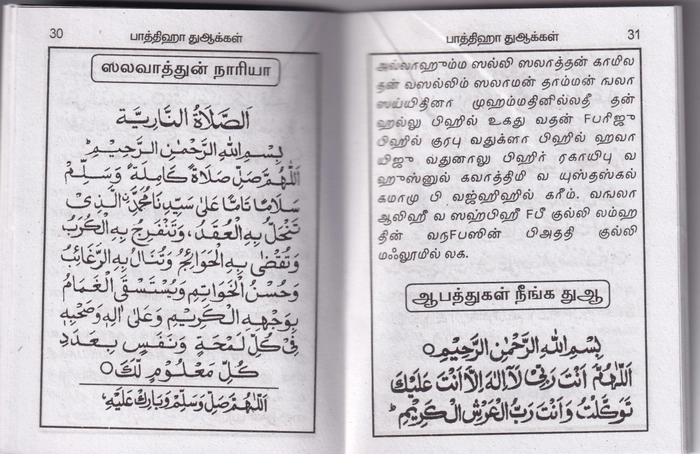 30
பாத்திஹா துஆக்கள்
ஸலவாத்துன் நாரியா
اَلصَّلَاةُ النَّارِيَّة
بِسْمِ اللهِ الرَّحْمٰنِ الرَّحِيْمِ
اَللّٰهُمَّ صَلِّ صَلَاةً كَامِلَةً وَسَلِّمْ
سَلَامًا تَامًّا عَلٰى سَيِّدِنَا مُحَمَّدِ نِ الَّذِيْ
تَنْحَلُّ بِهِ الْعُقَدُ، وَتَنْفَرِجُ بِهِ الْكُرَبُ
وَتُقْضٰى بِهِ الْحَوَائِجُ وَتُنَالُ بِهِ الرَّغَائِبُ
وَحُسْنُ الْخَوَاتِمِ وَيُسْتَسْقَى الْغَمَامُ
بِوَجْهِهِ الْكَرِيْمِ وَعَلٰى اٰلِهٖ وَصَحْبِهٖ
فِيْ كُلِّ لَمْحَةٍ وَنَفَسٍ بِعَدَدِ
كُلِّ مَعْلُوْمٍ لَّكَ
اَللّٰهُمَّ صَلِّ وَسَلِّمْ وَبَارِكْ عَلَيْهِ،
பாத்திஹா துஆக்கள்
31
அல்லாஹும்ம ஸல்லி ஸலாத்தன் காமில
தன் வஸல்லிம் ஸலாமன் தாம்மன் ஙலா
ஸய்யிதினா முஹம்மதினில்லதீ தன்
ஹல்லு பிஹில் உகது வதன் Fபரிஜு
பிஹில் குரபு வதுக்ளா பிஹில் ஹவா
யிஜு வதுனாலு பிஹிர் ரகாயிபு வ
ஹுஸ்னுல் கவாத்திமி வ யுஸ்தஸ்கல்
கமாமு பி வஜ்ஹிஹில் கரீம். வஙலா
ஆலிஹீ வ ஸஹ்பிஹீ Fபீ குல்லி லம்ஹ
தின் வநFபஸின் பிஅததி குல்லி
மஃலூமில் லக.
ஆபத்துகள் நீங்க துஆ
بِسْمِ اللهِ الرَّحْمٰنِ الرَّحِيْمِ
اَللّٰهُمَّ اَنْتَ رَبِّيْ لَآ اِلٰهَ اِلَّا اَنْتَ عَلَيْكَ
تَوَكَّلْتُ وَاَنْتَ رَبُّ الْعَرْشِ الْكَرِيْمِ